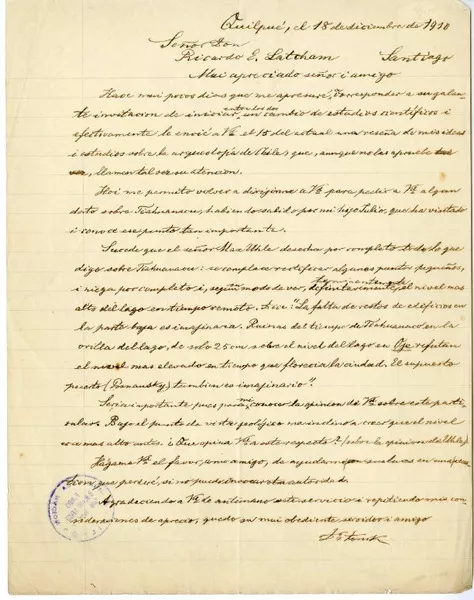 Quilpué, el 18 de diciembre de 1910
Señor Don
Ricardo E. Latcham Santiago
Mui apreciado señor i amigo
Hace mui pocos dias que me apresuré, corresponder a su galan-
te invitacion de iniciar, entre los dos un cambio de estudios científicos i
efectivamente le envié a Vd. el 15 del actual una reseña de mis ideas
i estudios sobre la arqueolojía de Chile; que, aunque no las apruebe
llamen tal vez su atencion.
Hoi me permito volver a dirijirme a Vd. para pedir a Vd. algun
dato sobre Tiahuanacu habiendo sabido por mi hijo que ha visitado
i conoce ese punto tan importante.
Sucede que el señor Max Uhle desecha por completo todo lo que
digo sobre Tiahuanacu: se complace rectificar algunos puntos pequeños,
i niega por completo i, segun modo de ver, definitivamente, el nivel mas
alto del lago en tiempo remoto. Dice: "La falta de restos de edificios en
la parte baja es imajinaria. Ruinas del tiempo de Tiahuanaco en la
orilla del lago, de solo 25 cm sobre el nivel del lago en Oje refutan
el nivel mas elevado en tiempo que florecia la ciudad. El supuesto
puerto (Posnansky) tambien es imajinario".
Seria importante pues para mi, conocer la opinion de Vd. sobre este parti-
cular. Bajo el punto de vista jeolójico me inclino a creer que el nivel
era mas alto antes. i Que opina Vd. a este respecto? (sobre la opinion de Uhle).
Hágame Vd. el favor, a mi amigo, de ayudarme con sus luces en
que perderé, si no puedo invocar otra autoridad.
Agradeciendo a Vd. de antemano este servicio i repitiendo mis con-
sideraciones de aprecio, quedo su mui obediente servidor i amigo